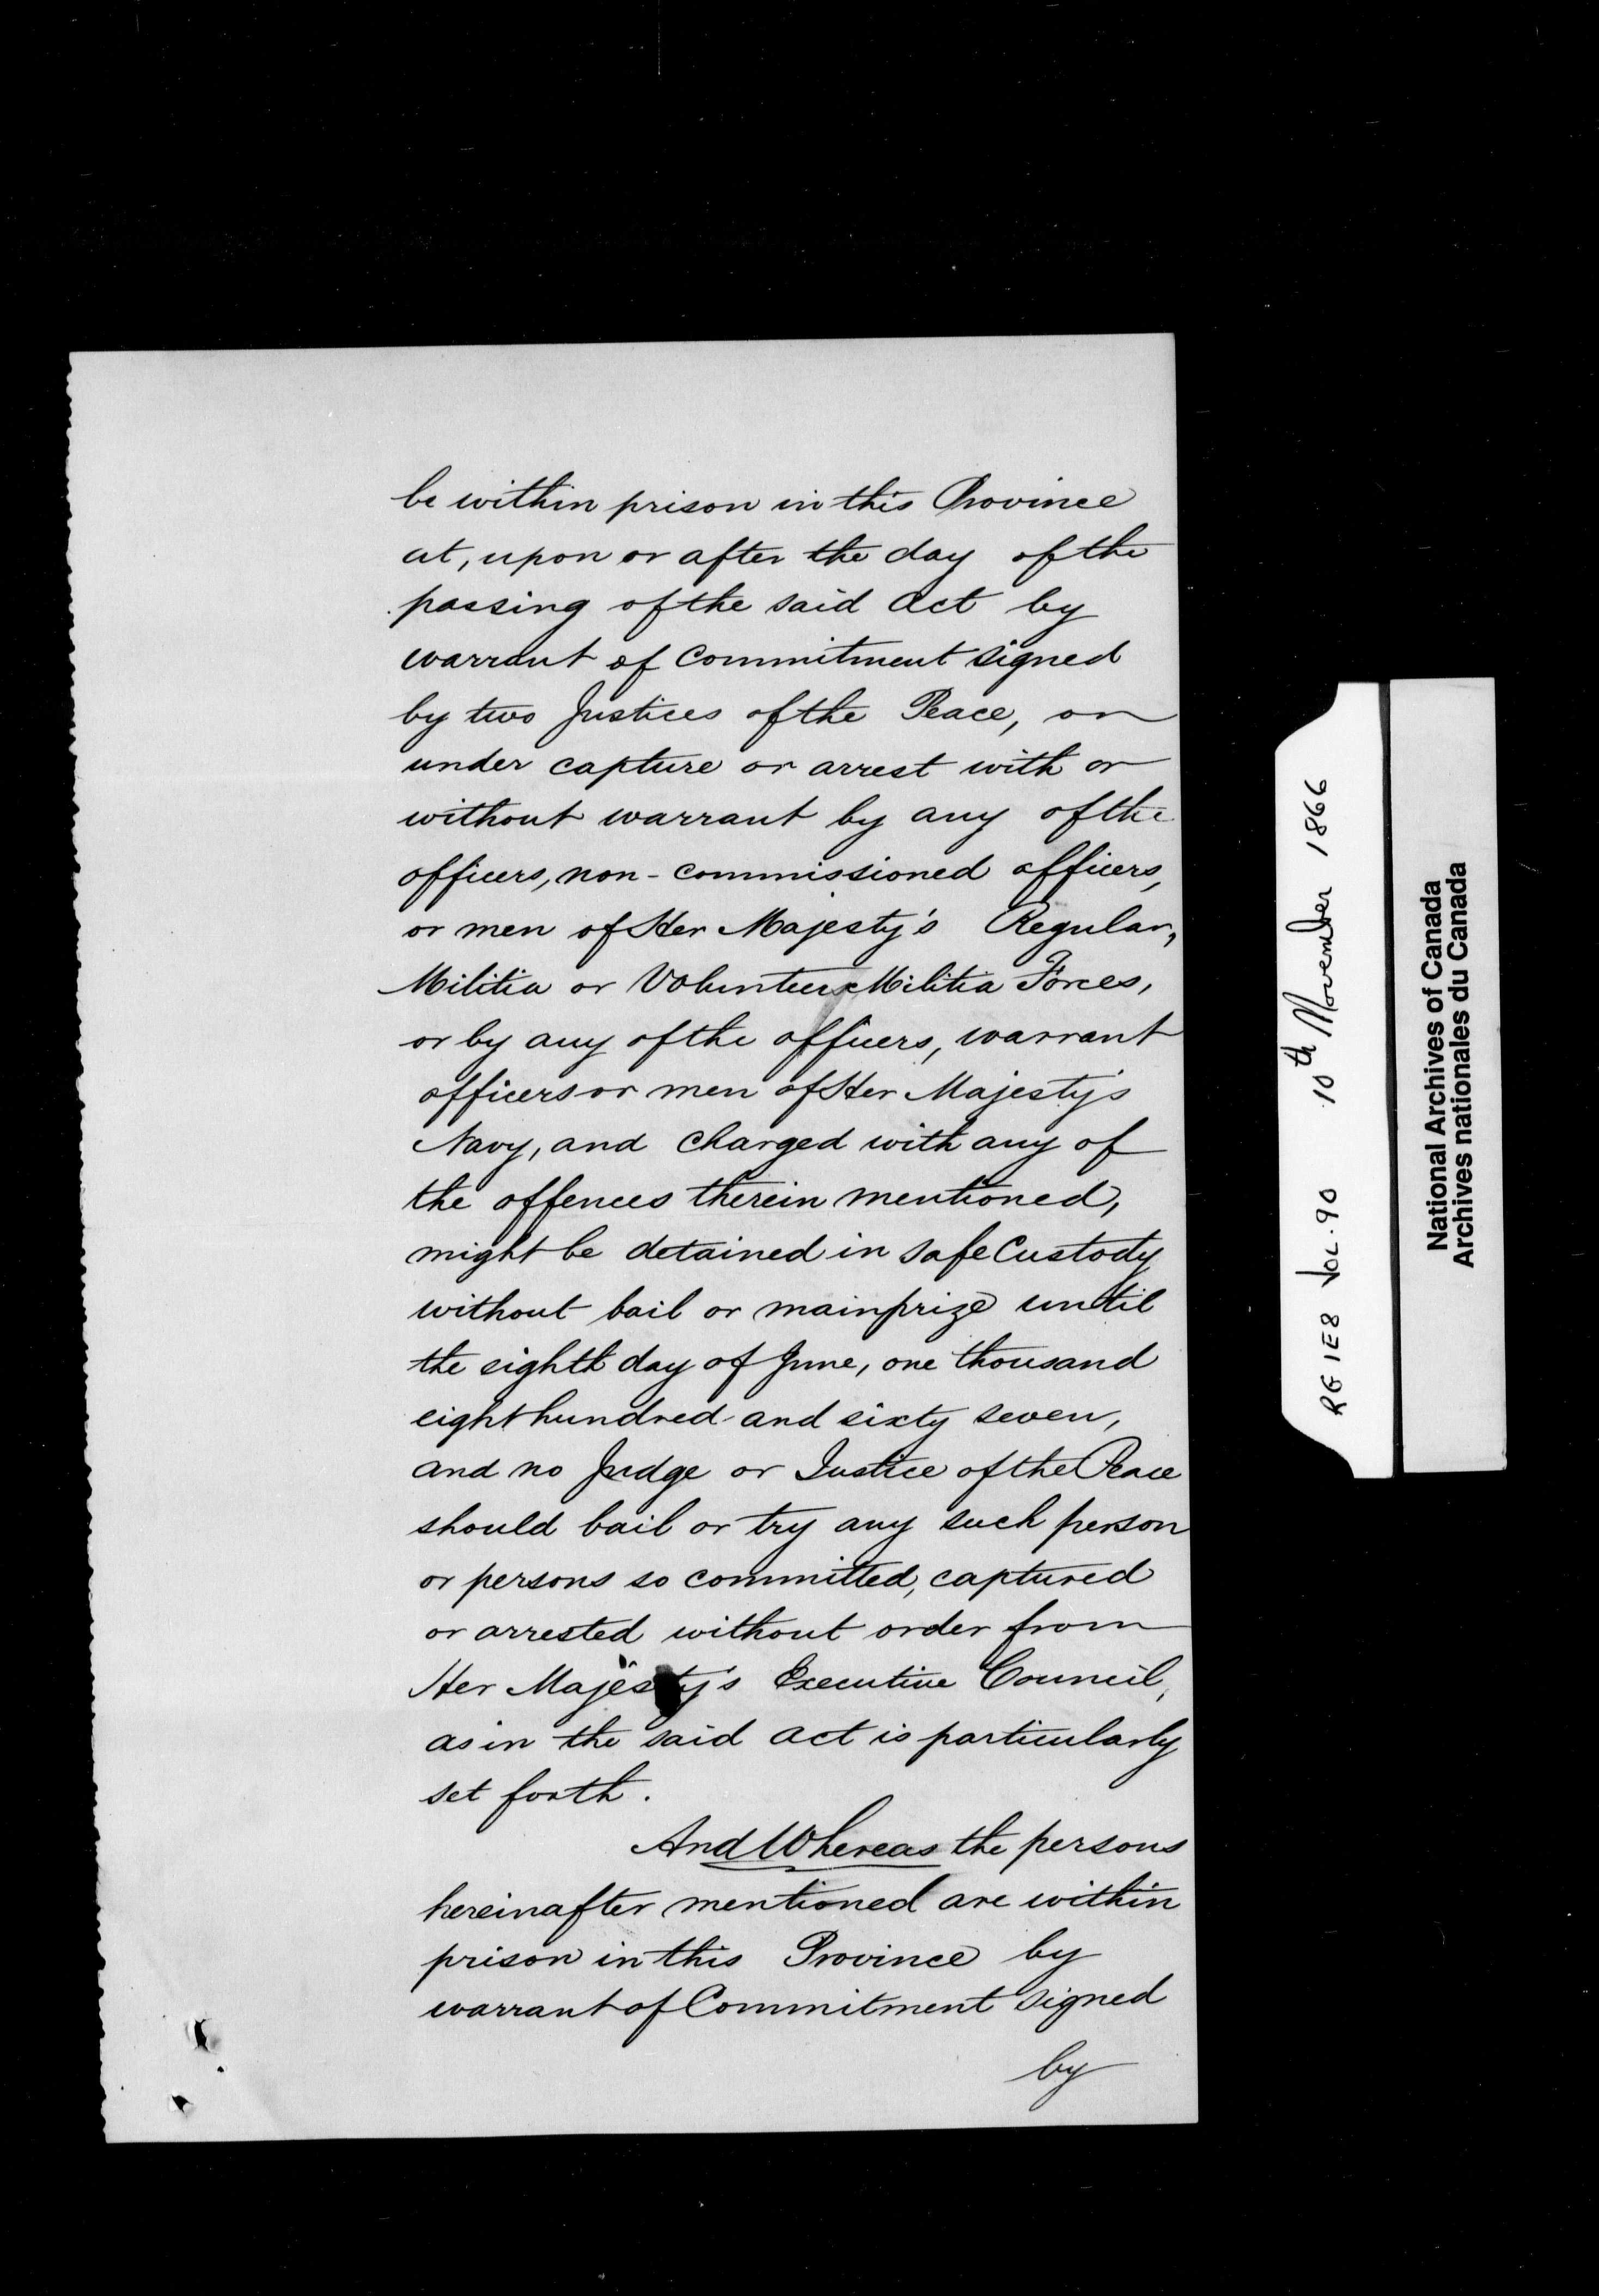 be within prison in this Province
at, upon or after the day of the
passing of the said Act by
warrant of commitment signed
by two Justices of the Peace, or
under capture or arrest with or
without warrant by any of the
officers, non-commissioned officers,
or men of Her Majesty's Regular,
Militia or Volunteer Militia Forces,
or by any of the officers, warrant
officers or men of Her Majesty's
Navy, and charged with any of
the offences therein mentioned,
might be detained in safe Custody
without bail or mainprize until
the eighth day of June, one thousand
eight hundred and sixty seven,
and no Judge or Justice of the Peace
should bail or try any such person
or persons so committed, captured
or arrested without order from
Her Majesty's Executive Council,
as in the said act is particularly
set forth.
And Whereas the persons
hereinafter mentioned are within
prison in this Province by
warrant of Commitment signed
by
RG 1E8 VOL. 90 10th November 1866
National Archives of Canada
Archives nationales du Canada